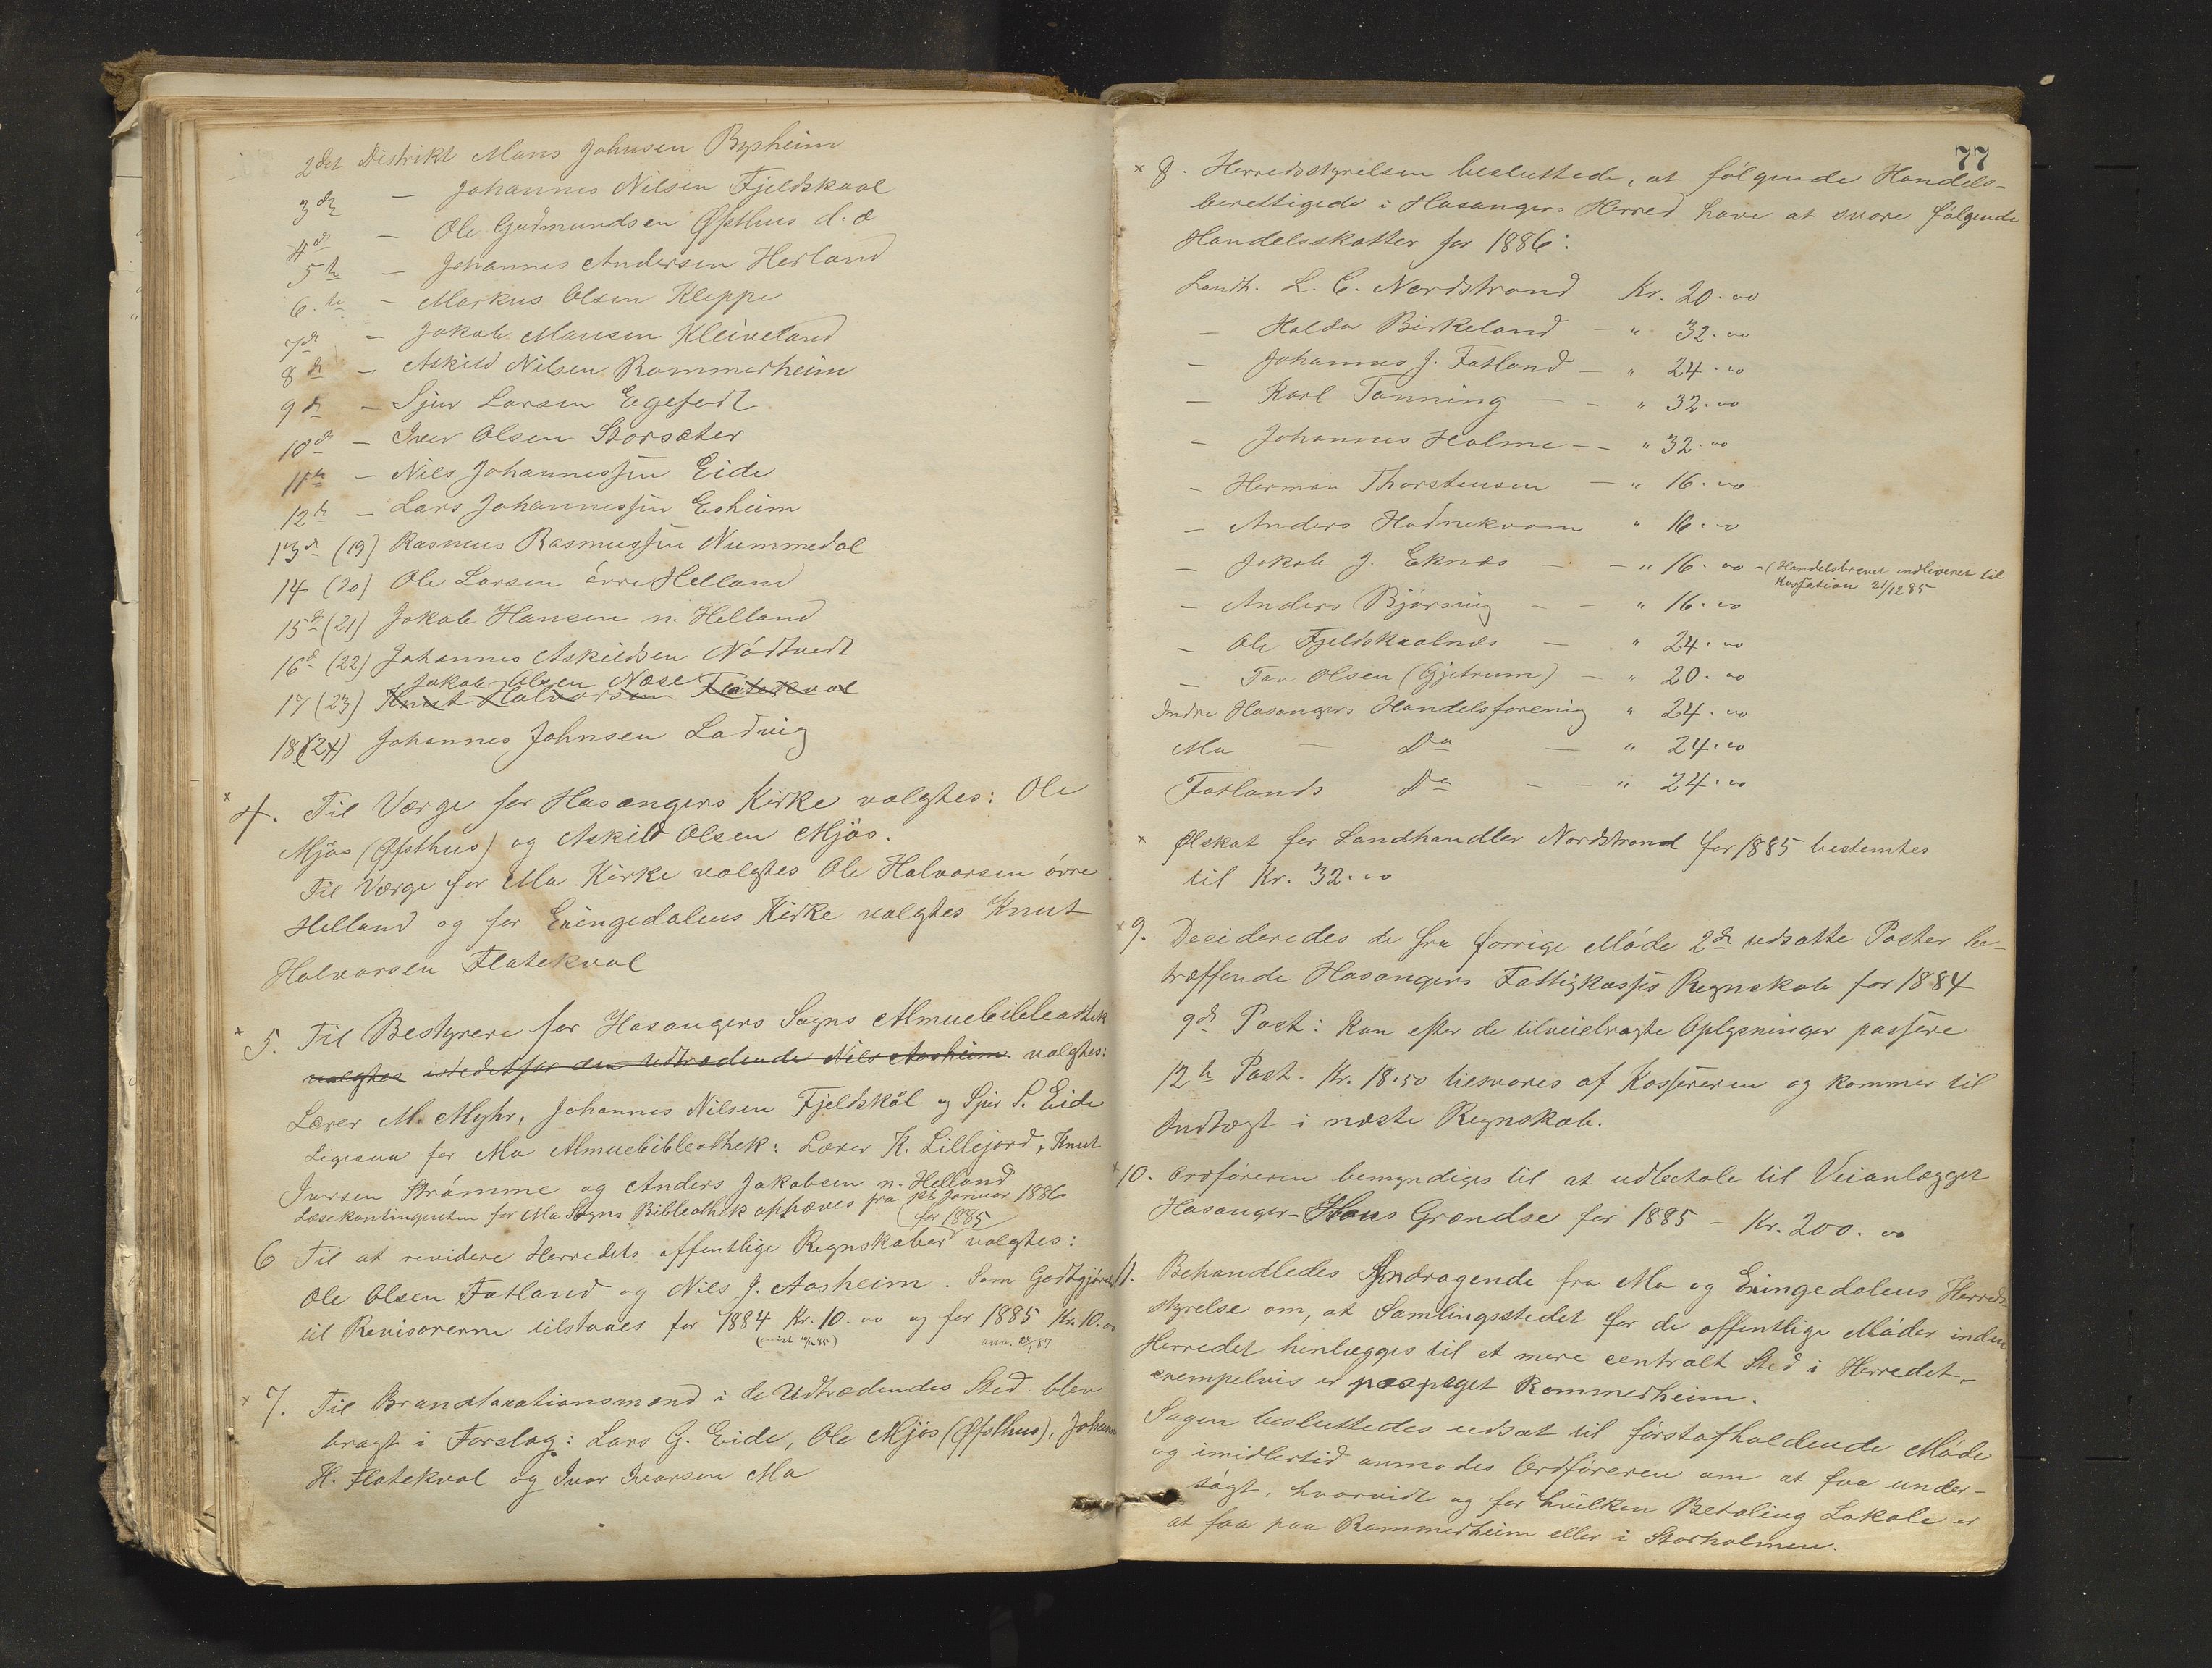 2det Distrikt Mons Johnsen Rypheim
3die - Johannes Nilsen Fjeldskaal
4de - Ole Gudmundsen Øfsthus d.æ
5te - Johannes Andersen Herland
6.te - Markus Olsen Kleppe
7de - Jakob Monsen Kleiveland
8de - Askild Nilsen Rommerheim
9de - Sjur Larsen Eegefedt
10de - Iver Olsen Storsæter
11te - Nils Johannessen Eide
12te - Lars Johannessen Esheim
13de (19) Rasmus Rasmussen Nummedal
14 (20) Ole Larsen övre Helland
15de (21) Jakob Hansen n. Helland
16de (22) Johannes Askildsen Nödtvedt
Jakob Olsen Nose
17 (23) Knut Halvorsen Flatekval
18 (24) Johannes Johnsen Ladvig
x 4. Til Værge for Hosangers Kirke valgtes: Ole
Mjøs (Øfsthus) og Askild Olsen Mjös.
Til Værge for Mo Kirke valgtes Ole Halvorsen övre
Helland og for Eksingedalens Kirke valgtes Knut
Halvorsen Flatekval
x 5. Til Bestyrere for Hosangers Sogns Almuebibleothek
valgtes istedetfor den Udtrædende Nils Aasheim valgtes:
Lærer M. Myhr, Johannes Nilsen Fjeldskål og Sjur S. Eide
Ligesaa for Mo Almuebibleothek: Lærer K. Lillejord, Knut
Iversen Strömme og Anders Jakobsen n. Helland
Læsekontingenten for Mo Sogns Bibleothek ophæves fra 1st Januar 1886
for 1885
6 Til at revidere Herredets offentlige Regnskaber valgtes:
Ole Olsen Fotland og Nils J. Aasheim. Som Godtgjörelse
til Revisorerne tilstaaes for 1884 Kr. 10.00 og for 1885 Kr. 10.00
x 7. Til Brandtaxationsmænd i de Udtrædendes Sted blev
bragt i Forslag: Lars G. Eide, Ole Mjös (Øfsthus), Johannes
H. Flatekval og Ivar Ivarsen Mo
77
x 8. Herredsstyrelsen besluttede, at fölgende Handels-
berettigede i Hosangers Herred have at svare fölgende
Handelsskatter for 1886:
Landh. L. C. Nordstrand Kr. 20.00
- Haldor Birkeland - " 32.00
- Johannes J. Fotland - " 24.00
- Karl Tonning - - " 32.00
- Johannes Holme - - " 32.00
- Herman Thorstensen - " 16.00
- Anders Hodnekvam " 16.00
- Jakob J. Eknæs - - " 16.00 - (Handelsbrevet indleveret til
Kassation 21/12 85
- Anders Bjørsvig - - " 16.00
- Ole Fjeldskaalnæs - " 24.00
- Tor Olsen (Gjetrum) - " 20.00
Indre Hosangers Handelsforening " 24.00
Mo - Do - " 24.00
Fotlands Do - - " 24.00
x Ølskat for Landhandler Nordstrand for 1885 bestemtes
til Kr. 32.00
x 9. Decideredes de fra forrige Möde 2de udsatte Poster be-
træffende Hosangers Fattigkasses Regnskab for 1884
9de Post: Kan efter de tilveiebragte Oplysninger passere
12te Post. Kr. 18.50 tilsvares af Kassereren og kommer til
Indtægt i næste Regnskab.
x 10. Ordföreren bemyndiges til at udbetale til Veianlægget
Hosanger-Hous Grændse for 1885 - Kr. 200.00
11. Behandledes Andragende fra Mo og Eksingedalens Herreds-
styrelse om, at Samlingsstedet for de offentlige Möder inden
Herredet henlægges til et mere centralt Sted i Herredet -
exempelvis er paapeget Rommerheim.
Sagen besluttedes udsat til förstafholdende Möde
og imidlertid anmodes Ordföreren om at faa under-
sögt, hvorvidt og for hvilken Betaling Lokale er
at faa paa Rommerheim eller i Storholmen.